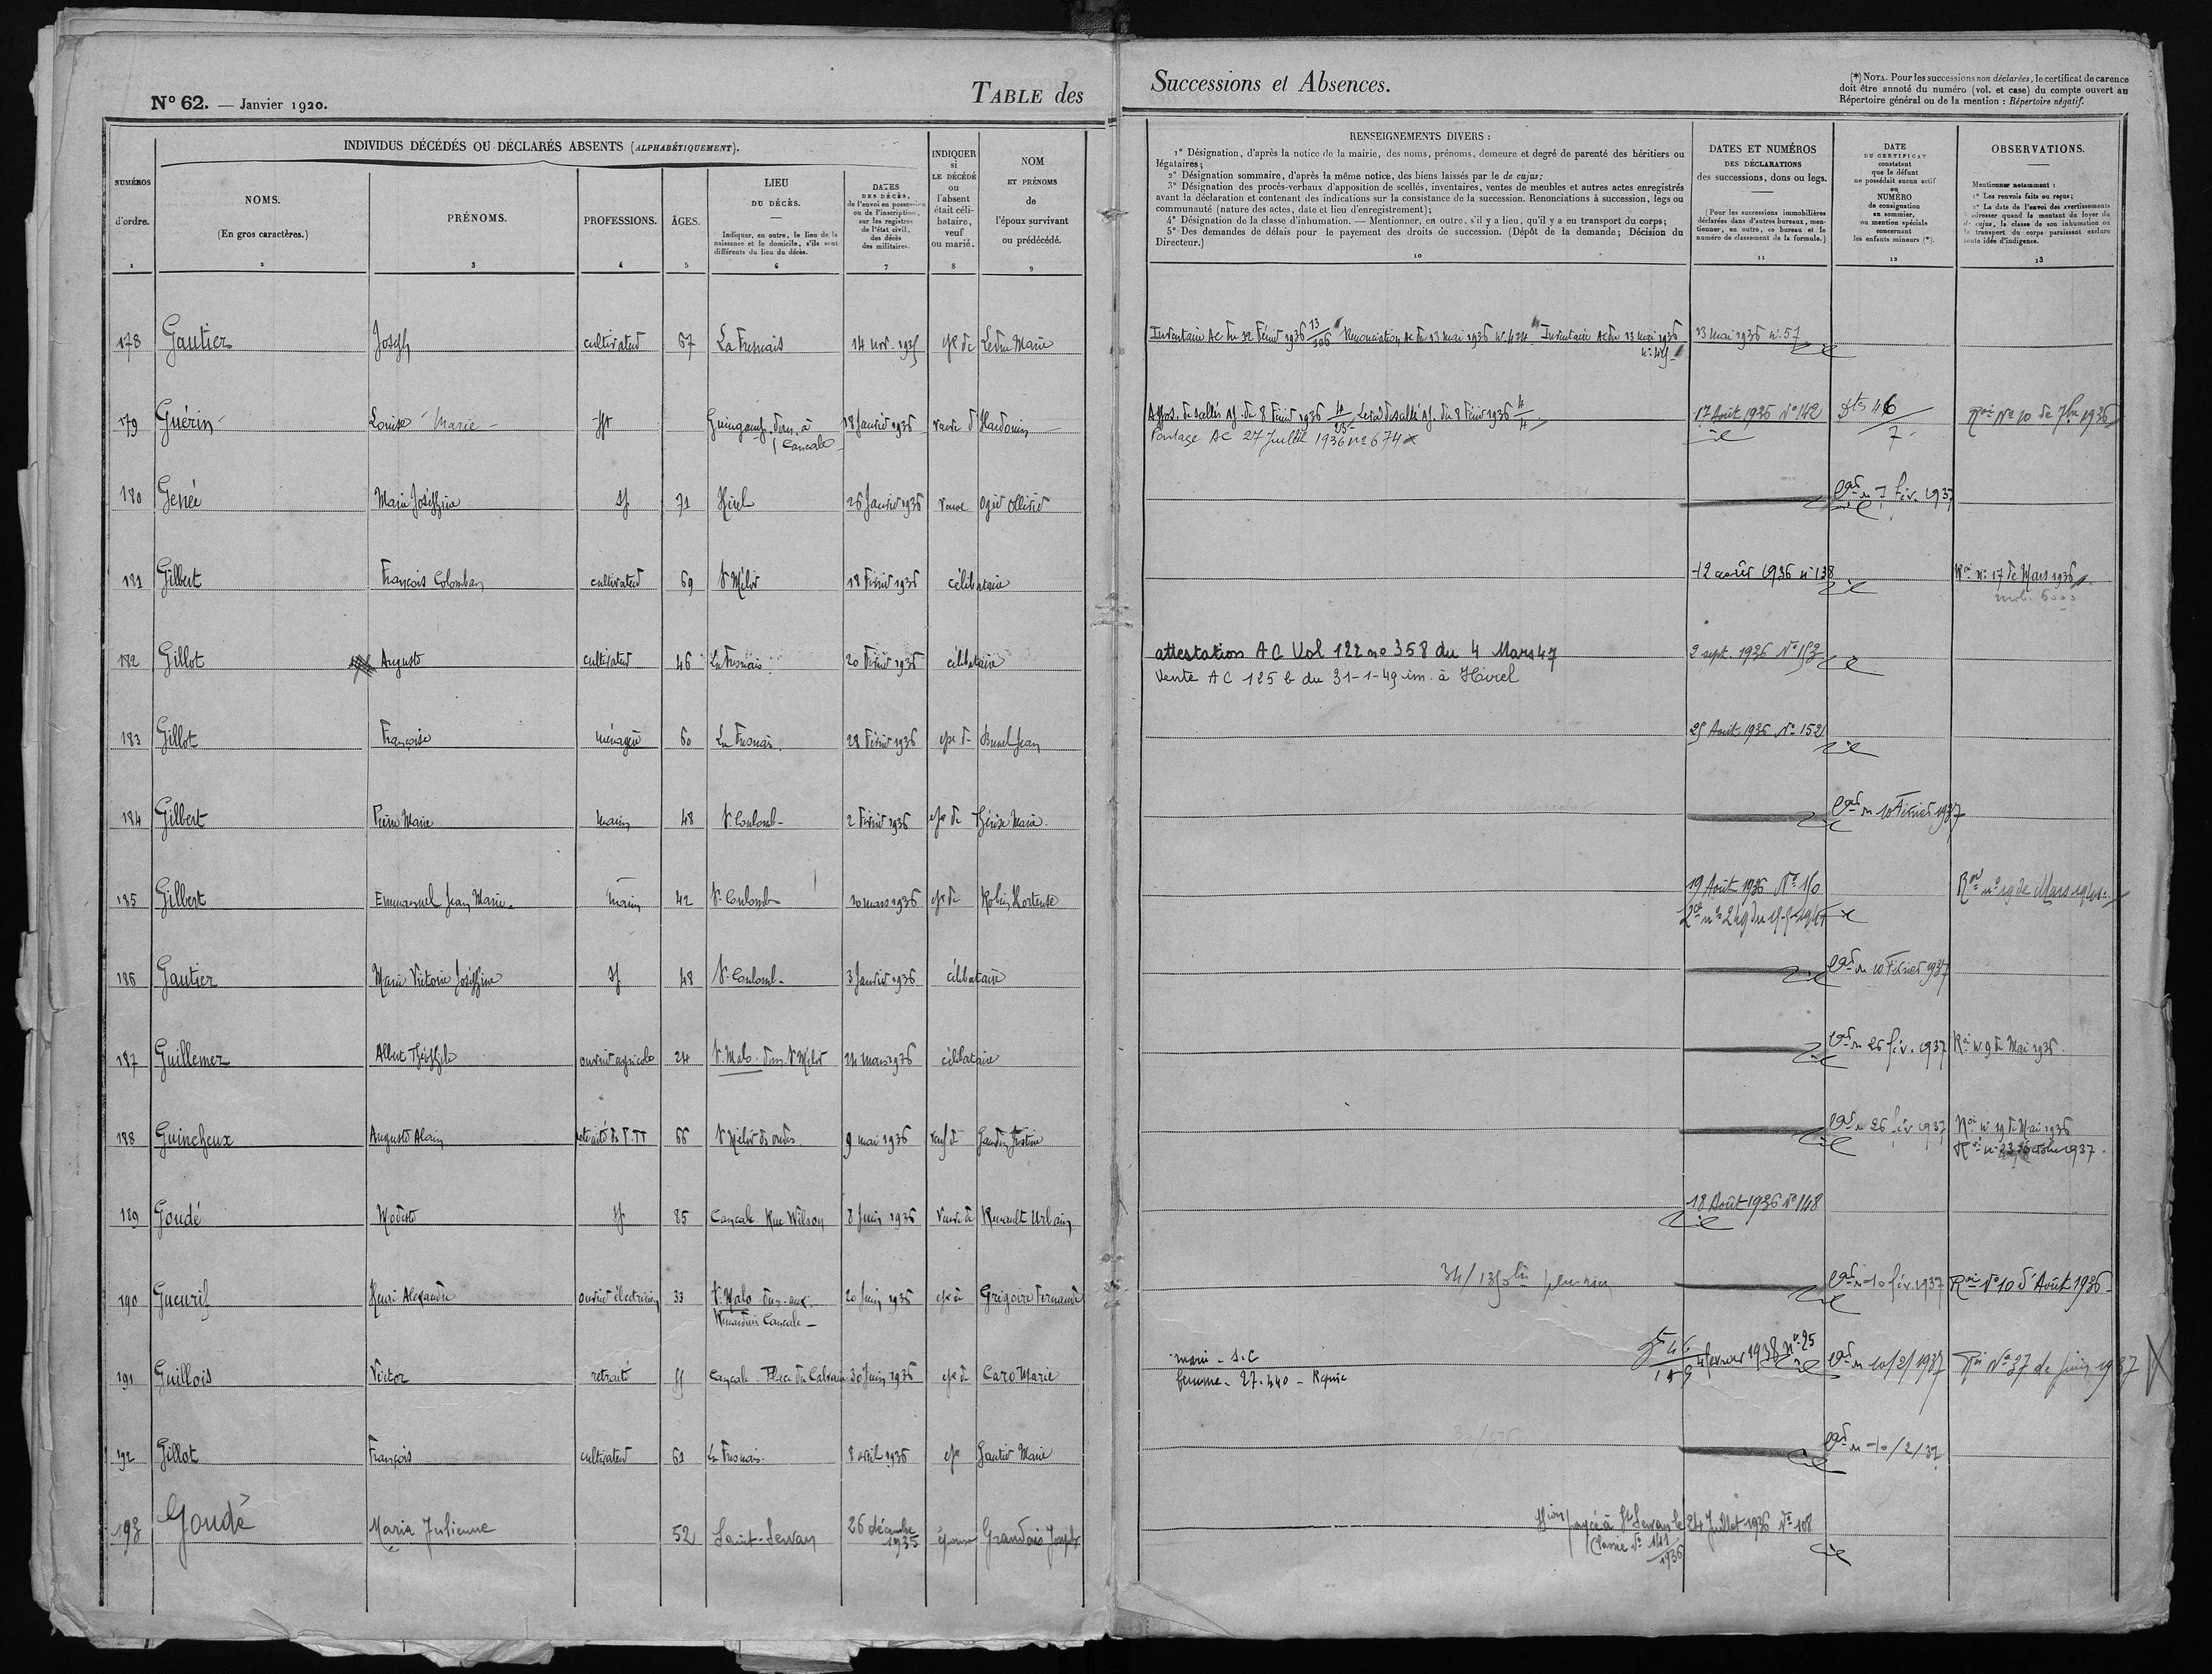 N° 62. — Janvier 1920.
TABLE des
Successions et Absences.
(*) NOTA. Pour les successions non déclarées, le certificat de carence
doit être annoté du numéro (vol. et case) du compte ouvert au
Répertoire général ou de la mention : Répertoire négatif.
NUMÉROS
d'ordre.
1
INDIVIDUS DÉCÉDÉS OU DÉCLARÉS ABSENTS (ALPHABÉTIQUEMENT).
NOMS.
(En gros caractères.)
2
PRÉNOMS.
3
PROFESSIONS.
4
ÂGES.
5
LIEU
DU DÉCÈS.
Indiquer, en outre, le lieu de la
naissance et le domicile, s'ils sont
différents du lieu du décès.
6
DATES
DES DÉCÈS,
de l'envoi en possession
ou de l'inscription,
sur les registres
de l'état civil,
des décès
des militaires.
7
INDIQUER
si
LE DÉCÉDÉ
ou
l'absent
était céli-
bataire,
veuf
ou marié.
8
NOM
ET PRÉNOMS
de
l'époux survivant
ou prédécédé.
9
RENSEIGNEMENTS DIVERS :
1° Désignation, d'après la notice de la mairie, des noms, prénoms, demeure et degré de parenté des héritiers ou
légataires;
2° Désignation sommaire, d'après la même notice, des biens laissés par le de cujus;
3° Désignation des procès-verbaux d'apposition de scellés, inventaires, ventes de meubles et autres actes enregistrés
avant la déclaration et contenant des indications sur la consistance de la succession. Renonciations à succession, legs ou
communauté (nature des actes, date et lieu d'enregistrement);
4° Désignation de la classe d'inhumation. — Mentionner, en outre, s'il y a lieu, qu'il y a eu transport du corps;
5° Des demandes de délais pour le payement des droits de succession. (Dépôt de la demande; Décision du
Directeur.)
10
DATES ET NUMÉROS
DES DÉCLARATIONS
des successions, dons ou legs.
(Pour les successions immobilières
déclarées dans d'autres bureaux, men-
tionner, en outre, ce bureau et le
numéro de classement de la formule.)
11
DATE
DU CERTIFICAT
constatant
que le défunt
ne possédait aucun actif
ou
NUMÉRO
de consignation
au sommier,
ou mention spéciale
concernant
les enfants mineurs (*).
12
OBSERVATIONS.
Mentionner notamment :
1° Les renvois faits ou reçus;
2° La date de l'envoi des avertissements
à adresser quand le montant du loyer du
de cujus, la classe de son inhumation ou
le transport du corps paraissent exclure
toute idée d'indigence.
13
178 Gautier Joseph cultivateur 67 La Fresnais 14 nov. 1935 épx de Ledu Marie Inventaire AC du 12 Février 1936 13/106 Renonciation AC du 13 mai 1936 n° 424 Inventaire AC du 13 mai 1936 13 mai 1936 n° 57
179 Guérin Louise Marie Guingamp. dom. à 18 Janvier 1936 veuve d' Hardouin 17 Août 1936 N° 142 46 N° 10 de 7bre 1936
Cancale
Partage AC 27 Juillet 1936 n° 674 7
180 Genée Marie Joséphine sp 71 Hirel 26 Janvier 1936 veuve Ogier Ollivier 7 fév. 1937
181 Gilbert François Colomban cultivateur 69 St Méloir 18 Février 1936 célibataire 12 août 1936 n° 138 n° 17 de Mars 1936
182 Gillot Auguste cultivateur 46 La Fresnais 20 Février 1936 célibataire attestation AC Vol 122 n° 358 du 4 Mars 47 2 sept. 1936 N° 153
Vente AC 125 b du 31-1-49 im. à Hirel
183 Gillot Françoise ménagère 60 La Fresnais 28 Février 1936 épse de Brunel Jean 25 Août 1936 N° 152
184 Gilbert Pierre Marie marin 48 St Coulomb 2 Février 1936 épx de Thérèse Marie. 10 Février 1937
185 Gilbert Emmanuel Jean Marie marin 42 St Coulomb 10 mars 1936 épx de Robin Hortense 19 Août 1936 N° 150 n° 19 de Mars
186 Gautier Marie Victoire Joséphine sp 48 St Coulomb 3 Janvier 1936 célibataire 10 Février 1937
187 Guillemer Albert Théophile ouvrier agricole 24 St Malo. dom. St Méloir 24 mars 1936 célibataire 26 fév. 1937 n° 9 de Mai 1936.
188 Guincheux Auguste Alain retraité des P.TT 66 St Méloir des ondes 9 mai 1936 veuf de Gaudin Justine 26 fév 1937 de Mai 1936
octobre 1937.
189 Goudé Modeste sp 85 Cancale Rue Wilson 8 Juin 1936 veuve de Renault Urbain 18 Août 1936 N° 148
190 Gueuril Henri Alexandre ouvrier électricien 33 St Malo dom. aux 20 Juin 1936 épx de Grégoire Fernande 10 fév. 1937 N° 10 d'Août 1936
Cancale
191 Guillois Victor retraité 55 Cancale Place du Calvaire 30 Juin 1936 épx de Caro Marie mari - S.C 4 février 1938 n° 25 10/2/1937 N° 37 de Juin 1937
femme - 27.540 - Reprise
192 Gillot François cultivateur 61 La Fresnais 8 avril 1936 épx Gautier Marie 10/2/37
193 Goudé Maria Julienne 52 Saint-Servan 26 décembre 1935 épouse Grandois Joseph à St Servan le 24 Juillet 1936 N° 108
Classée N° 141
1936